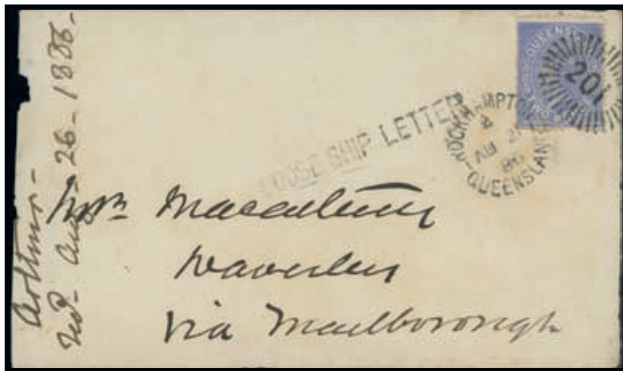 Arthur -
Recd. Aug - 26 - 1886 -
LOOSE SHIP LETTER
ROCKHAMPTON
AU
86
QUEENSLAND
QUEENSLAND
201
Mrs Macartney
Waverley
via Marlborough